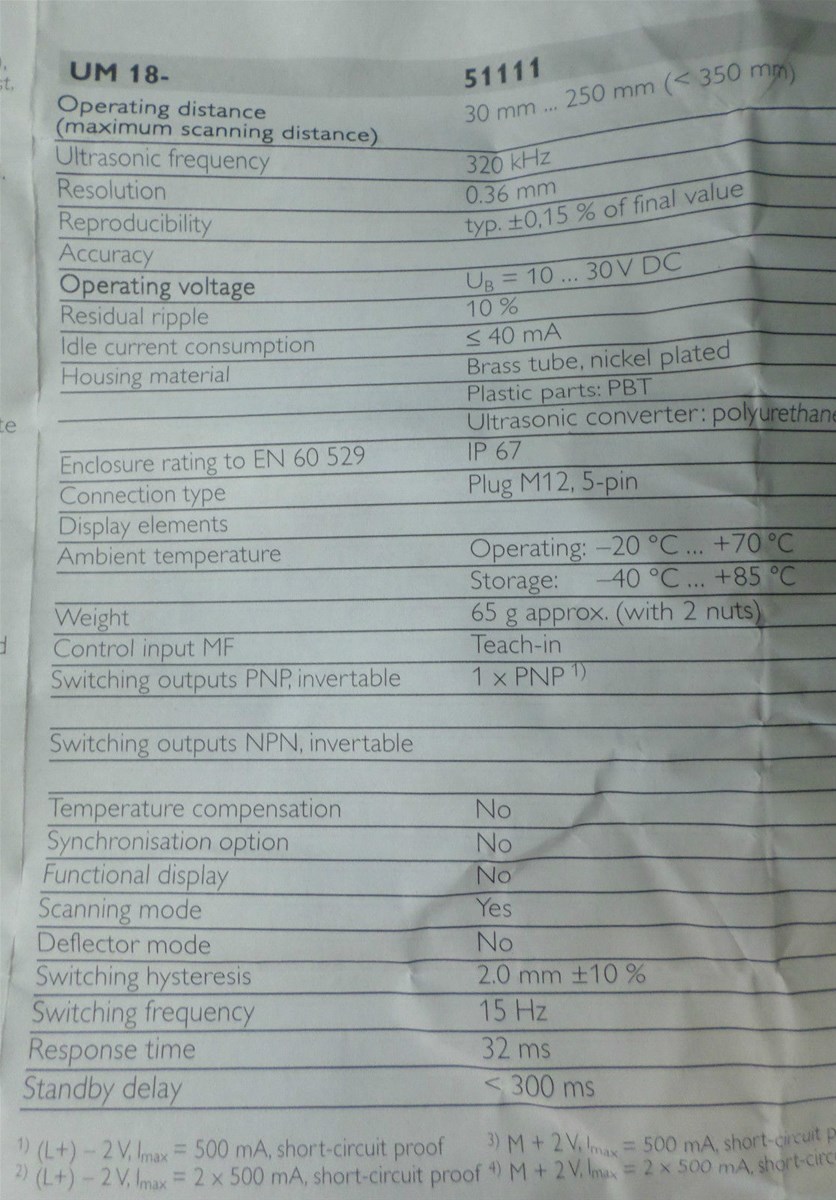 UM 18- 51111
Operating distance 30 mm ... 250 mm (< 350 mm)
(maximum scanning distance)
Ultrasonic frequency 320 kHz
Resolution 0.36 mm
Reproducibility typ. ±0,15 % of final value
Accuracy
Operating voltage UB = 10 ... 30 V DC
Residual ripple 10 %
Idle current consumption ≤ 40 mA
Housing material Brass tube, nickel plated
Plastic parts: PBT
Ultrasonic converter: polyurethane
Enclosure rating to EN 60 529 IP 67
Connection type Plug M12, 5-pin
Display elements
Ambient temperature Operating: –20 °C ... +70 °C
Storage: –40 °C ... +85 °C
Weight 65 g approx. (with 2 nuts)
Control input MF Teach-in
Switching outputs PNP, invertable 1 x PNP 1)
Switching outputs NPN, invertable
Temperature compensation No
Synchronisation option No
Functional display No
Scanning mode Yes
Deflector mode No
Switching hysteresis 2.0 mm ±10 %
Switching frequency 15 Hz
Response time 32 ms
Standby delay < 300 ms
1) (L+) – 2 V, Imax = 500 mA, short-circuit proof 3) M + 2 V, Imax = 500 mA, short-circuit
2) (L+) – 2 V, Imax = 2 x 500 mA, short-circuit proof 4) M + 2 V, Imax = 2 x 500 mA,